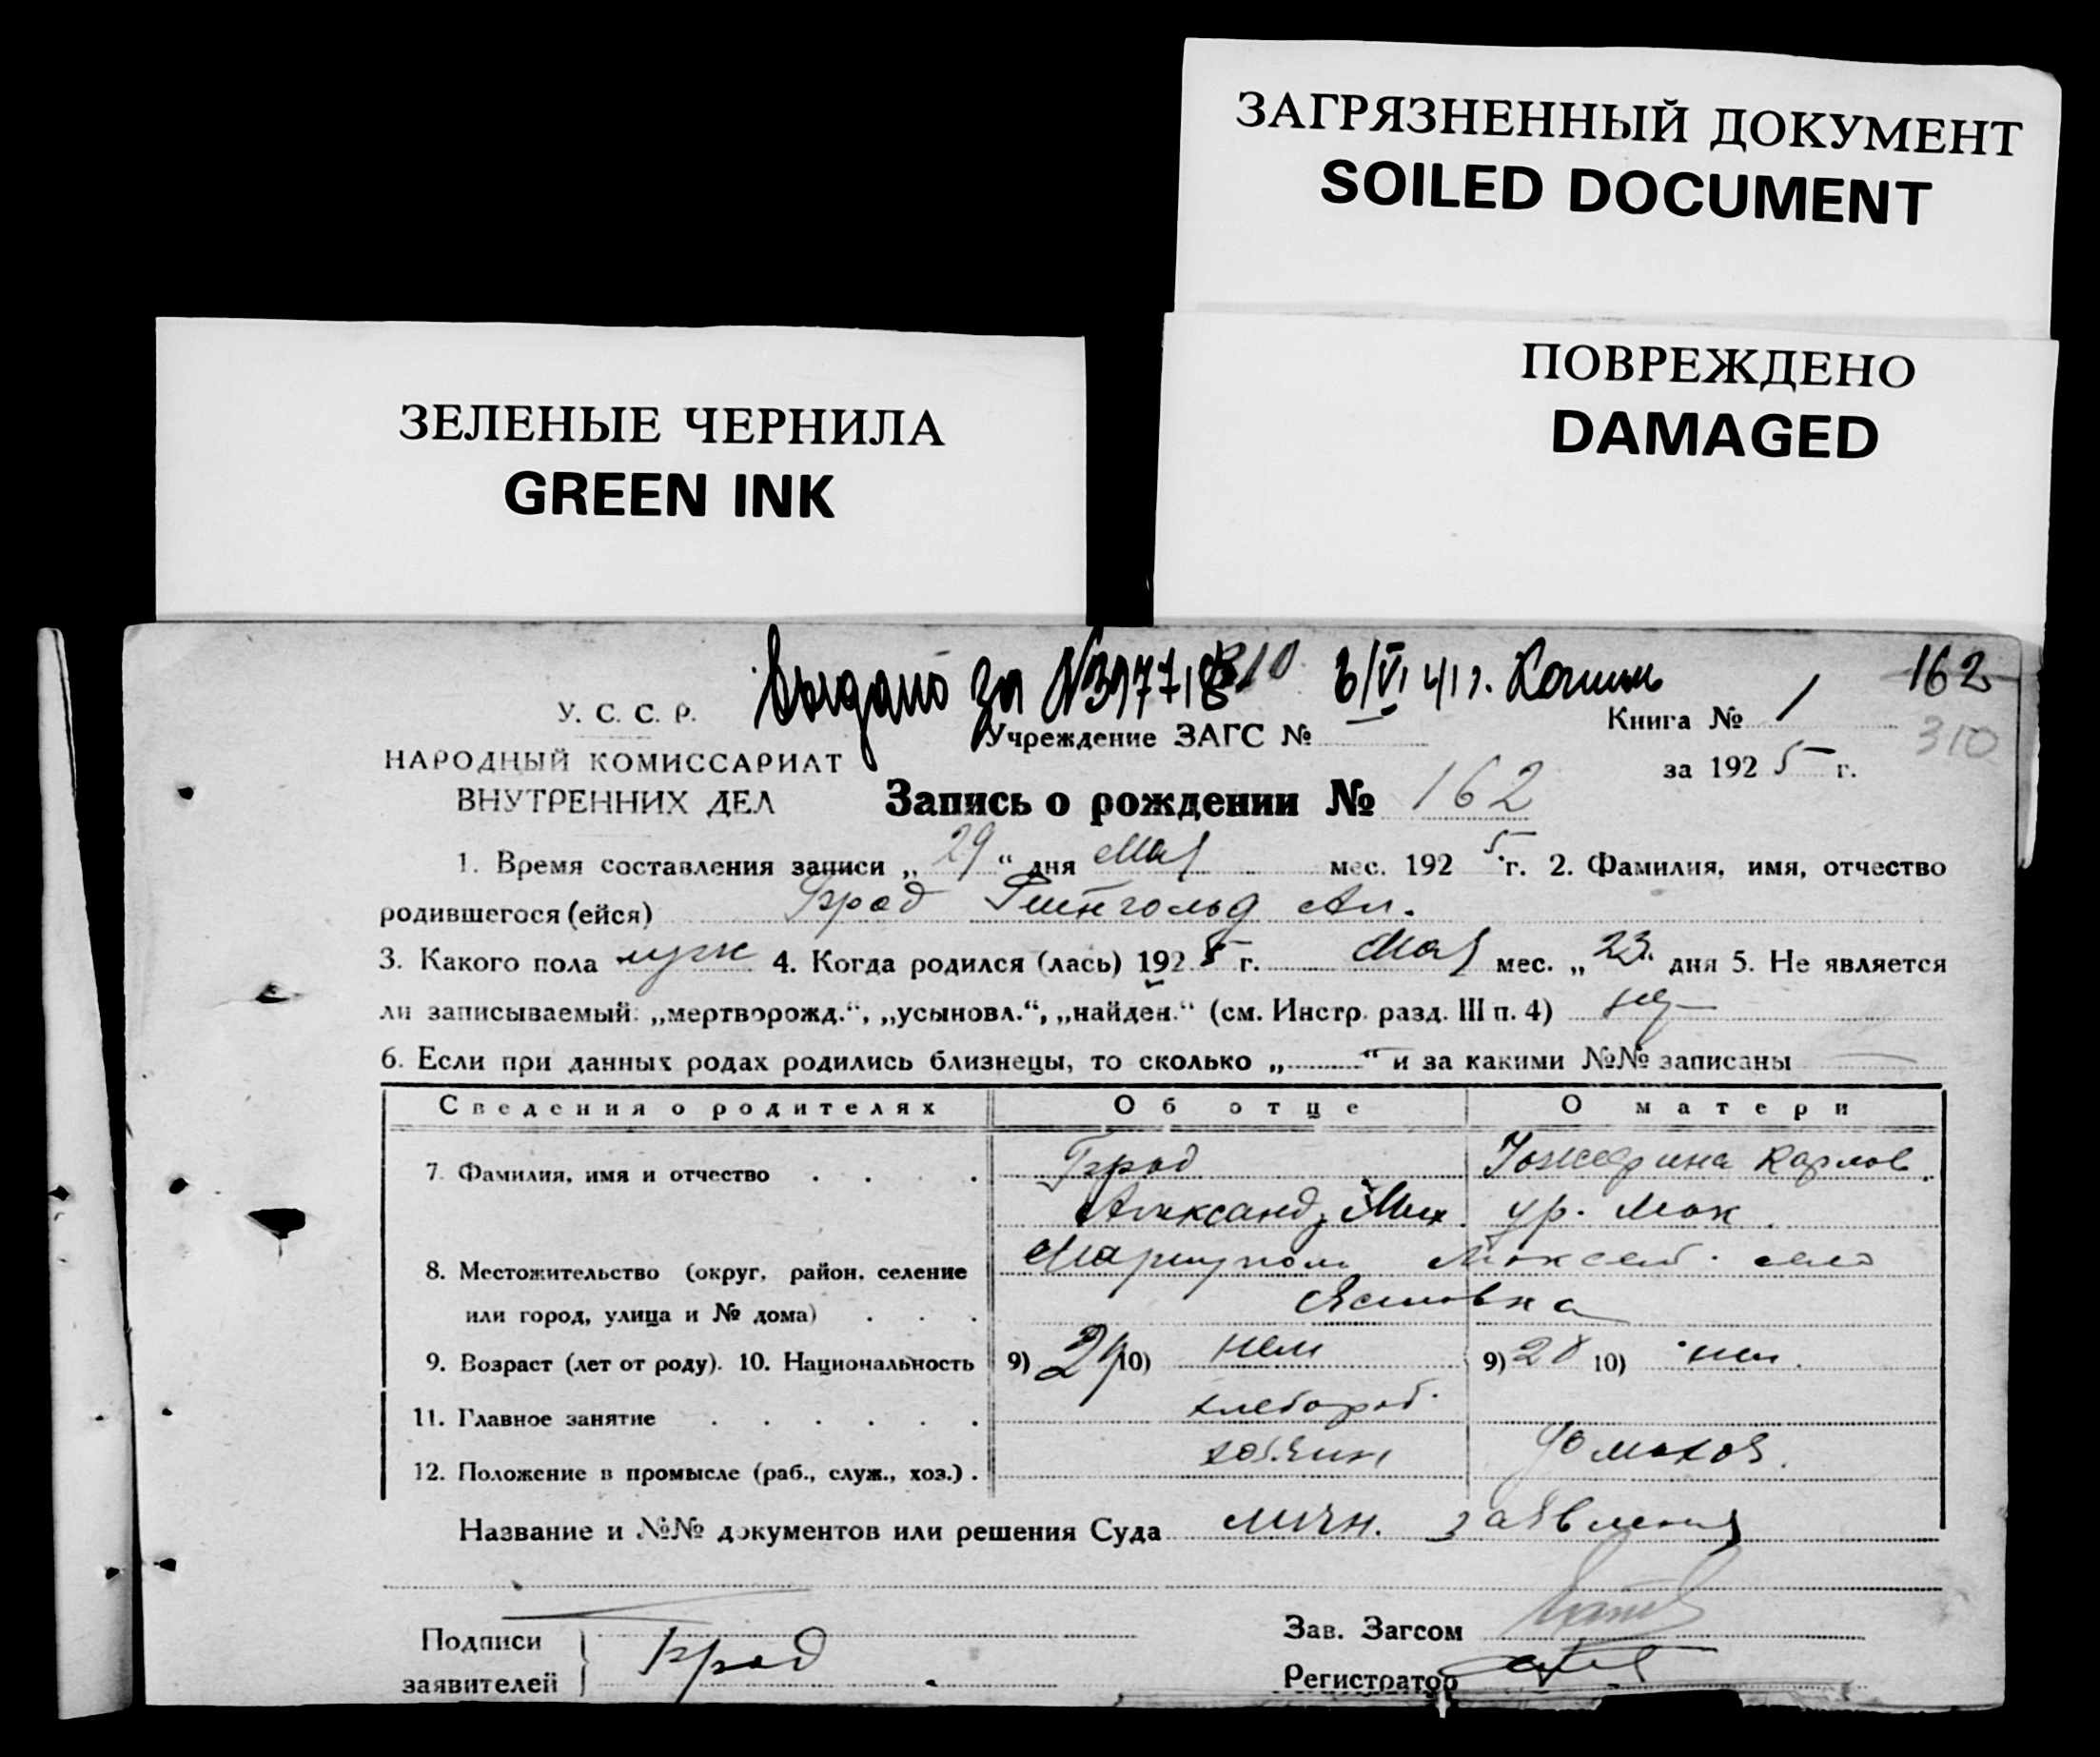 ЗАГРЯЗНЕННЫЙ ДОКУМЕНТ
SOILED DOCUMENT
ПОВРЕЖДЕНО
DAMAGED
ЗЕЛЕНЫЕ ЧЕРНИЛА
GREEN INK
Выдано за №
6/VI 41 г.
162
310
У. С. С. Р.
Учреждение ЗАГС №
Книга № 1
НАРОДНЫЙ КОМИССАРИАТ
за 1925 г.
ВНУТРЕННИХ ДЕЛ
Запись о рождении № 162
1. Время составления записи „29“ дня Мая мес. 1925 г. 2. Фамилия, имя, отчество
родившегося (ейся) Брод Рейнгольд Ал.
3. Какого пола муж 4. Когда родился (лась) 1925 г. Мая мес. „23. дня 5. Не является
ли записываемый: „мертворожд.“, „усыновл.“, „найден.“ (см. Инстр. разд. III п. 4) нет
6. Если при данных родах родились близнецы, то сколько „—“ и за какими №№ записаны —
Сведения о родителях Об отце О матери
7. Фамилия, имя и отчество Брод Карлов.
Александр Мих. ур. Мок
8. Местожительство (округ, район, селение Мариуполь село
или город, улица и № дома)
9. Возраст (лет от роду). 10. Национальность 9) 29 10) нем 9) 28 10) нем.
11. Главное занятие хлебороб.
12. Положение в промысле (раб., служ., хоз.) хозяин домохоз.
Название и №№ документов или решения Суда личн. заявления
Подписи
заявителей
Брод
Зав. Загсом
Регистратор